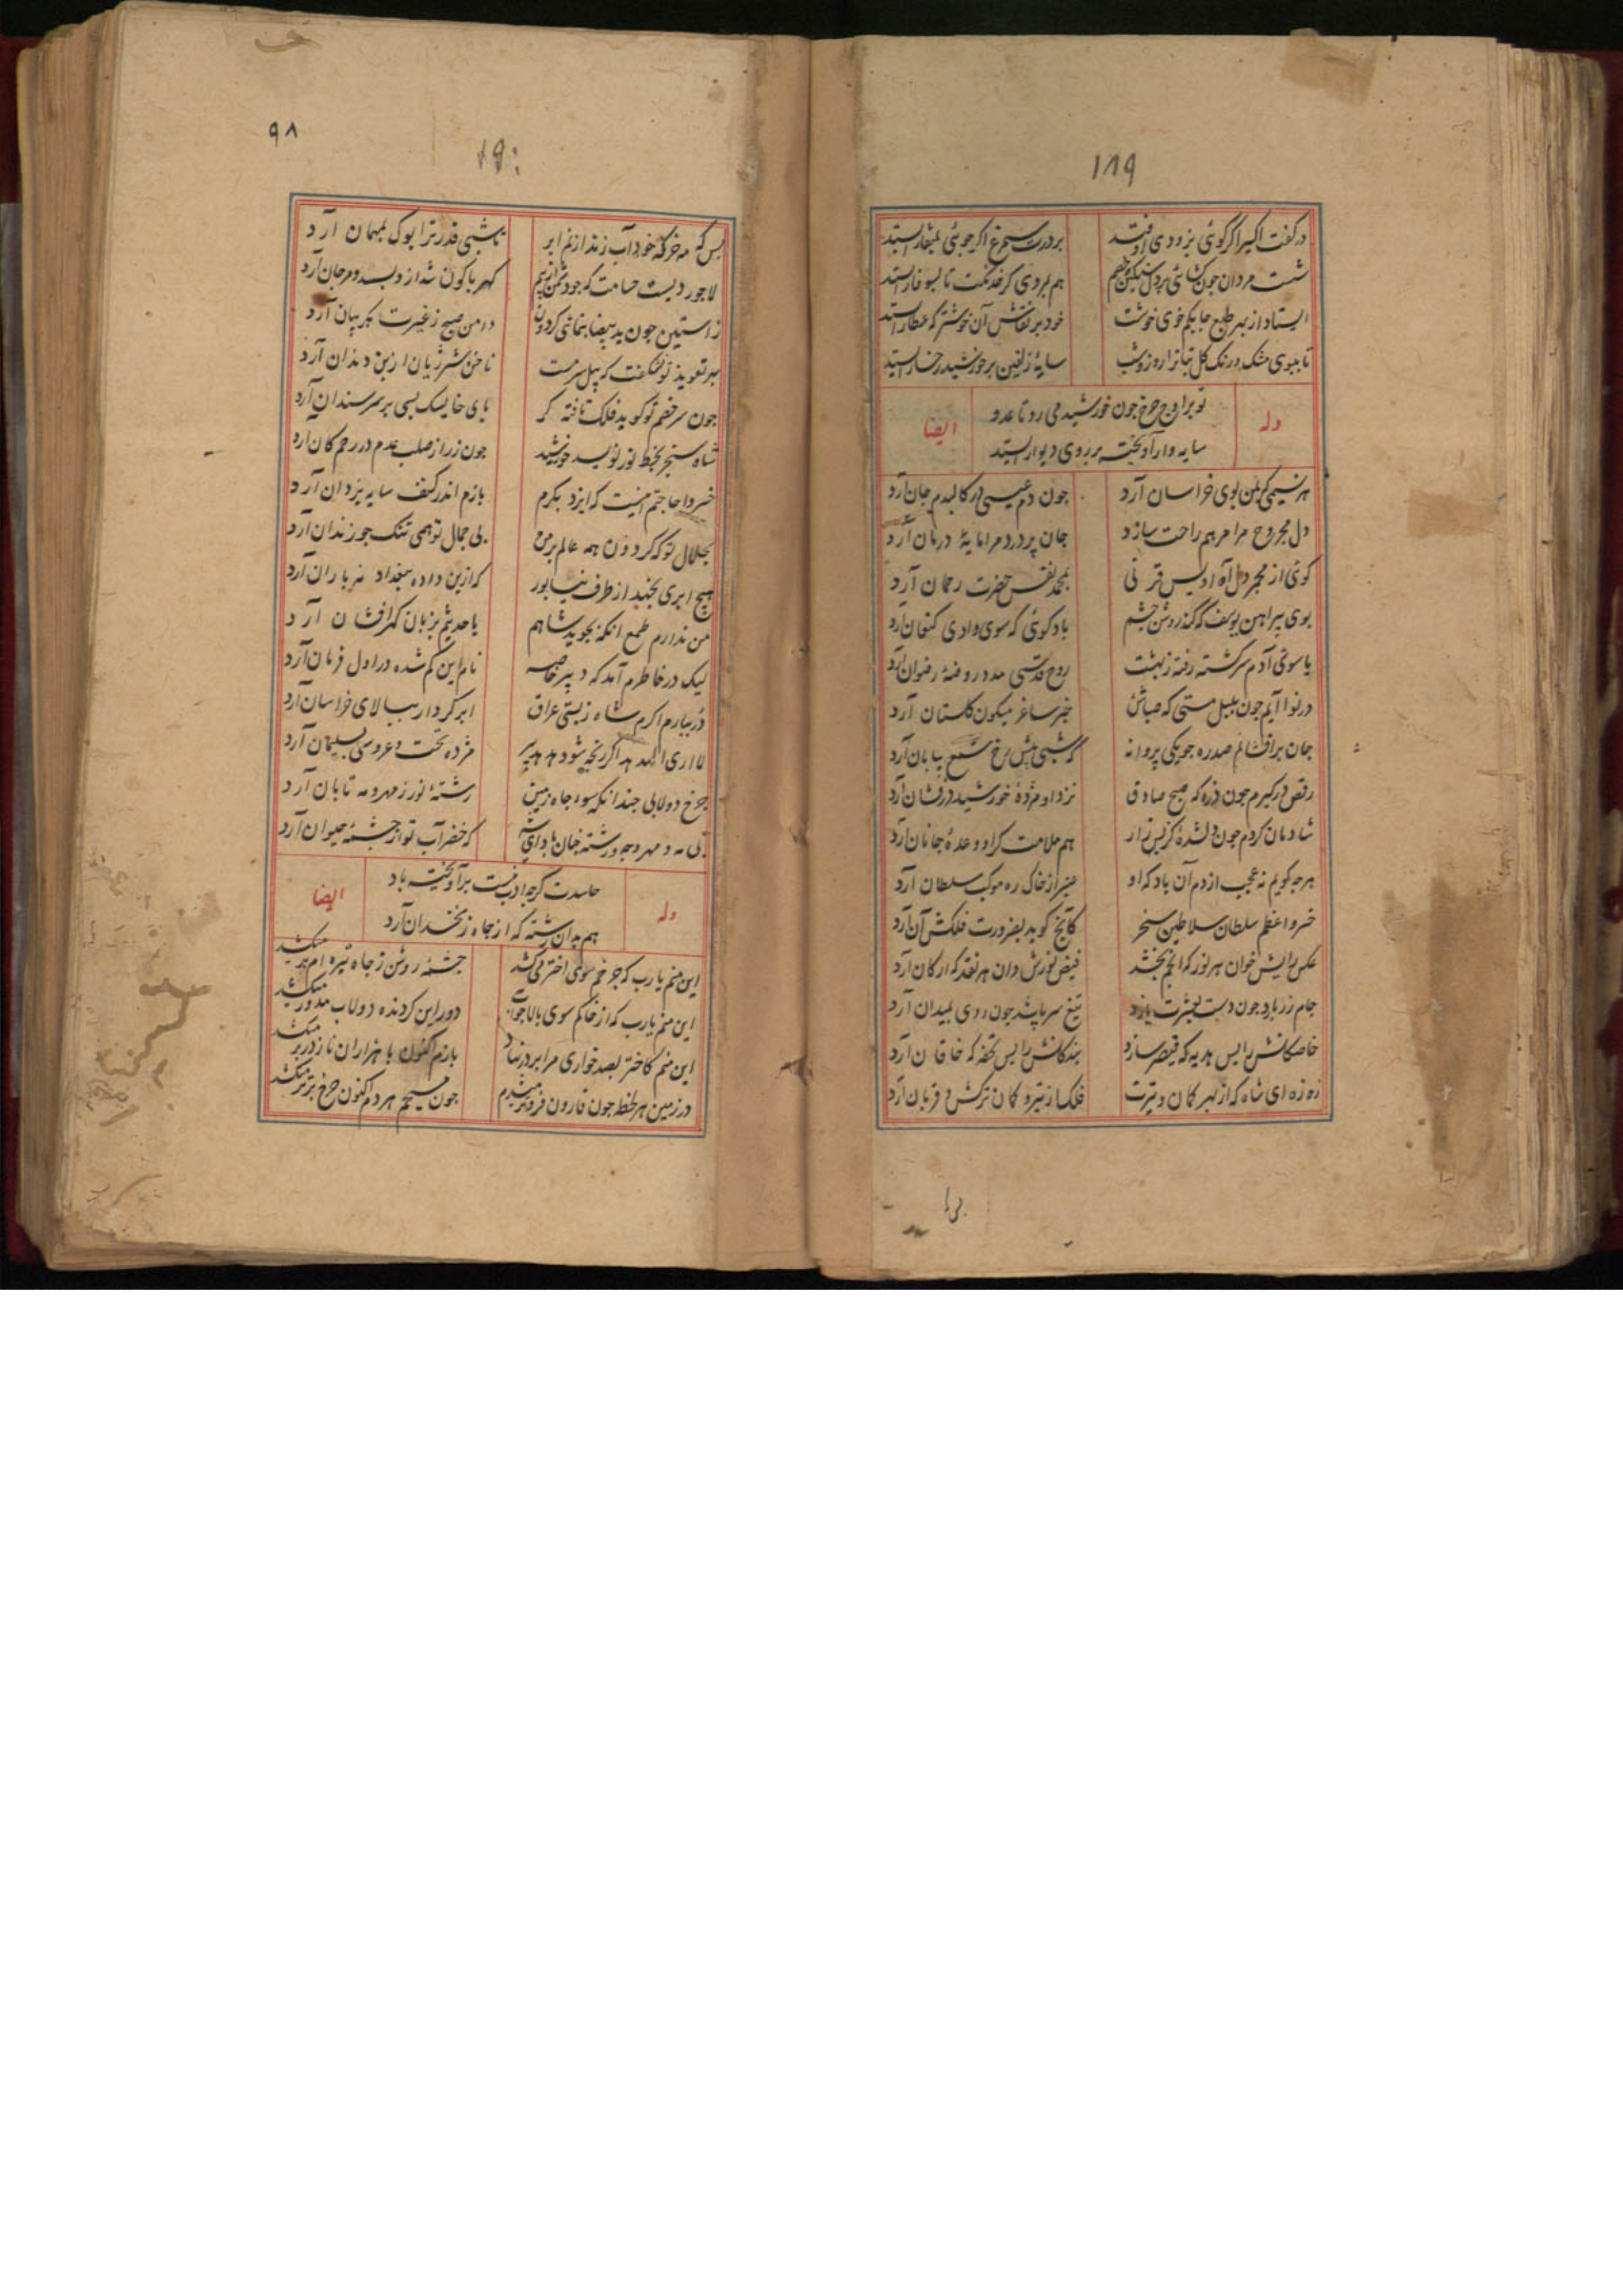 ۱۸۹
درکفت اکسیر اکر کوئی بزودی اوفتد
بردرت سیمرغ اکر جوئی بمنقار ایستد
شست مردان جون کشائی بر دل سنکین خصم
هم بروی کر خدنکت تا بسوفار ایستد
ایستاد از بهر طبع جابکم خوی خوشت
خود برنقاش آن خوشتر که عطار ایستد
تا ببوی مشک در رنک کل
سایهٔ زلفین بر خورشید رخسار ایستد
وله
تو بر اوج جرخ جون خورشید می رو تا عدو
ایضا
سایه وار آویخته بر روی دیوار ایستد
هر نسیمی که بمن بوی خراسان آرد
جون دم عیسی در کالبدم جان آرد
دل مجروح مرا مرهم راحت سازد
جان پر درد مرا مایهٔ درمان آرد
کوئی از مجمر دل آه اویس قرنی
بمحمد نفس حضرت رحمان آرد
بوی پیراهن یوسف که کند روشن جشم
باد کوئی که سوی وادی کنعان آرد
یا سوی آدم سرکشته رفته ز بهشت
روح قدسی مدد روضهٔ رضوان آرد
در نوا آیم جون بلبل مستی که صباش
خبر ساغر میکون کلستان آرد
جان برافشانم صد ره جو یکی پروانه
که شبی پیش رخ شمع بپایان آرد
رقص درکیرم جون ذره که صبح صادق
نزد او مژدهٔ خورشید درفشان آرد
شادمان کردم جون دلشدهٔ کز پس زار
هم ملامت کر او وعدهٔ جانان آرد
هرجه کویم نه عجب از دم آن باد که او
عنبر از خاک ره موکب سلطان آرد
خسرو اعظم سلطان سلاطین سنجر
کانج کوید بضرورت فلکش آن آرد
عکس رایش خوان هر نور که انجم بخشد
فیض نورش دان هر نقد که ارکان آرد
جام زر بارد جون دست بعشرت یازد
تیغ سر پاشد جون روی بمیدان آرد
خاصکانش را بس هدیه که قیصر سازد
بندکانش را بس تحفه که خاقان آرد
زه زه ای شاه که از بهر کمان و تیرت
فلک از تیر و کمان ترکش و قربان آرد
۹۸
۱۹۰
بس که مه خرکه خود آب زند از نم ابر
تا شبی قدر ترا بوک بمهمان آرد
لاجوردیست حسامت که جو دشمن را بیم
کهربا کون شد از دبسد و مرجان آرد
ز آستین جون ید بیضا بنمائی کردون
دامن صبح ز غیرت بکریبان آرد
بهر تعویذ تو نشکفت که پیل سرمست
ناخن شیر ژیان از بن دندان آرد
جون سر خصم تو کوید فلک تافته کر
پای خایسک بسی بر سر سندان آرد
شاه سنجر بخط نور نویسد خورشید
جون زر از صلب عدم در رحم کان آرد
خسروا حاجتم اینست که ایزد بکرم
بازم اندر کنف سایه یزدان آرد
بجلال تو که کردون همه عالم بر من
بی جمال تو همی تنک جو زندان آرد
هیچ ابری بجهد از طرف نیسابور
که ازین داده ببغداد نه باران آرد
من ندارم طمع انکه بجوید شاهم
یا حدیثم بزبان کهرافشان آرد
لیک در خاطرم آمد که دبیر خاصه
نام این کم شده در اول فرمان آرد
در بیارم اکرم شاه ز بستی عراق
ابر کردار ببالای خراسان آرد
لا اری الهدهد اکر رنجه شود هدهد پیر
مژده تخت و عروسی بسلیمان آرد
جرخ دولابی جندانکه سوء جاه زمین
رشتهٔ نور ز مهر و مه تابان آرد
که خضر آب تو از جشمهٔ حیوان آرد
وله
حاسدت کرجه ادب نیست برآویخته باد
ایضا
هم بدان رشته که از جاه زنخدان آرد
این منم یا رب که جرخم سوی اختر می کشد
جشمهٔ روشن ز جاه تیره ام بر میکشد
این منم یا رب که از خاکم سوی بالا
دور این کردنده دولاب مدور میکشد
این منم کاختر بصد خواری مرا بر در نهاد
بازم اکنون با هزاران ناز در بر میکشد
در زمین هر لحظه جون قارون فروتر میشدم
جون مسیحم هر دم اکنون جرخ برتر میکشد